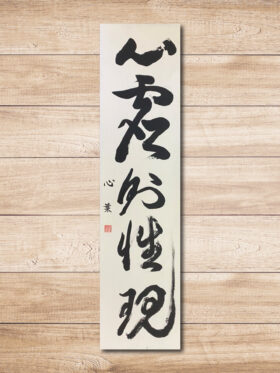 心虚則性現
心葉